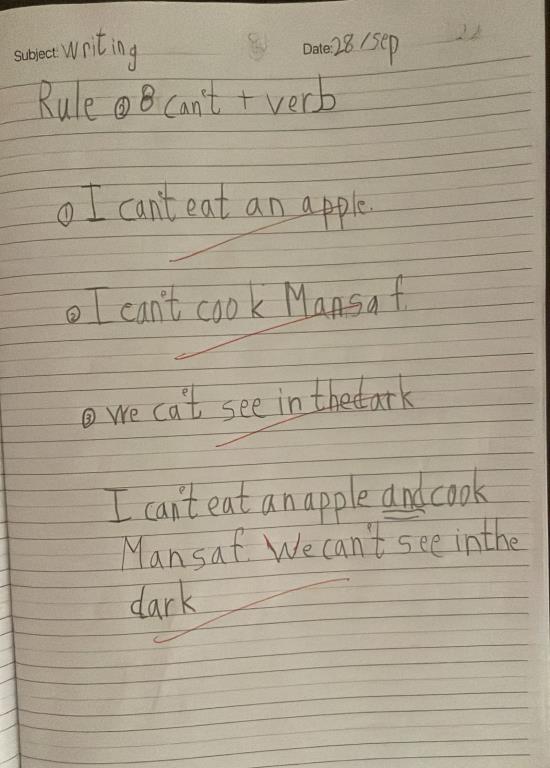 Subject: writing Date: 28/sep
Rule ② 8 can't + verb
① I can't eat an apple.
② I can't cook Mansaf.
③ we ca't see in the dark
I can't eat an apple and cook
Mansaf. We can't see in the
dark